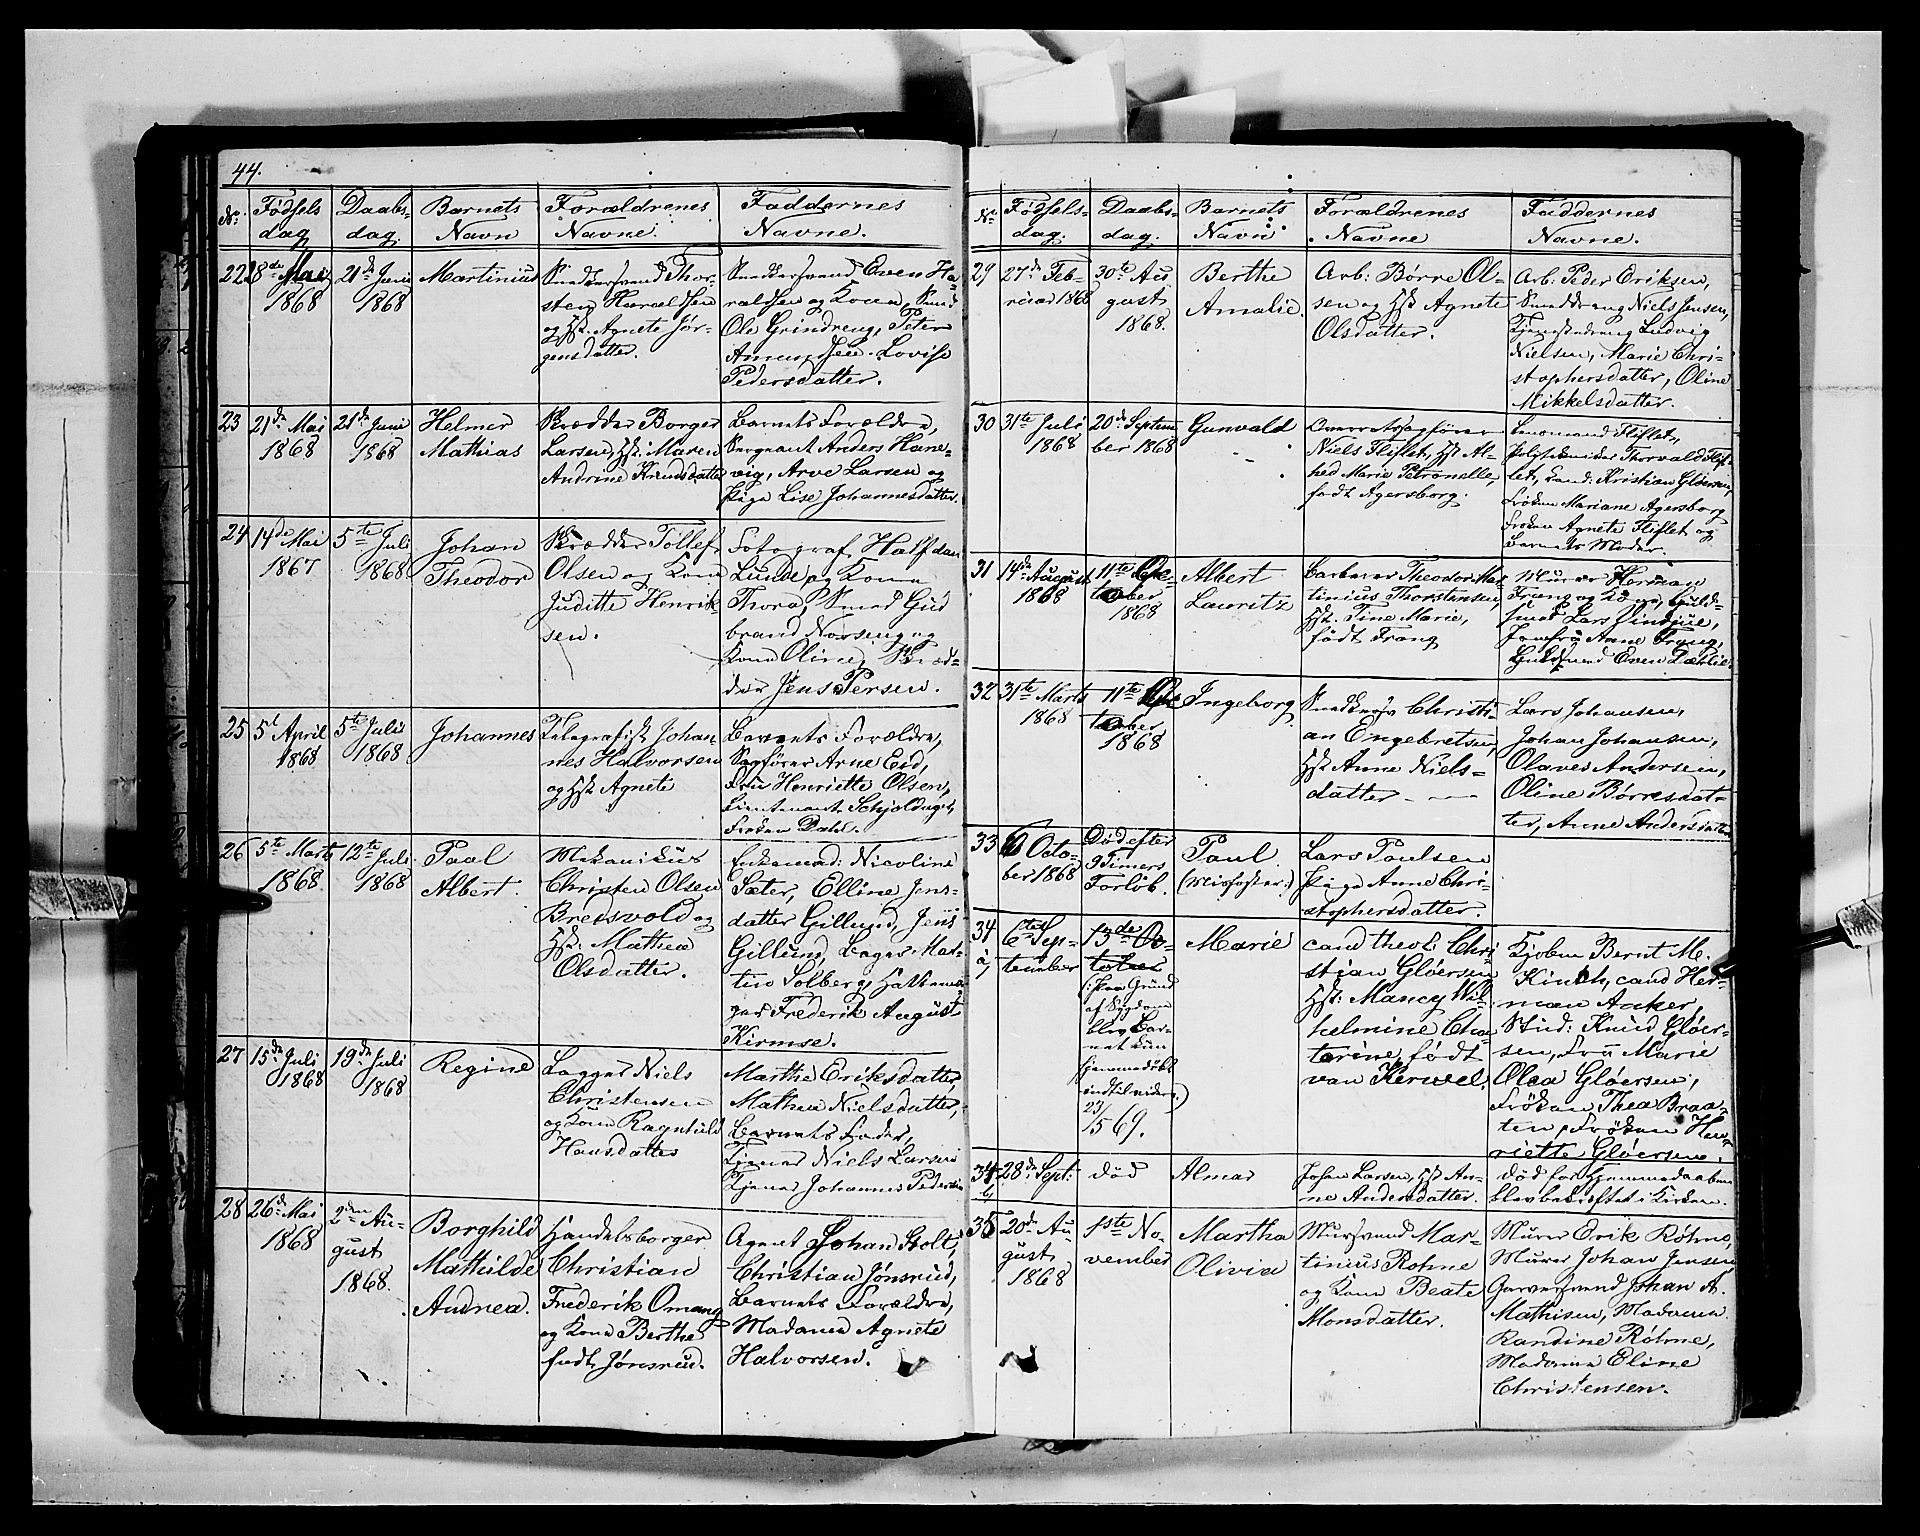 44.
No. Fødsels dag Daabs- dag. Barnets Navn Forældrenes Navne. Faddernes Navne.
22 8de Mai 1868 21de Juni 1868 Martinius
Snedkersvend Thor-
sten Haraldsen
og Hst. Agnete Jør-
gensdatter.
Snedkersvend Even Ha-
raldsen og Kone, Smed
Ole Grindreng, Peter
Amundsen. Lovise
Pedersdatter.
23 21de Mai 1868 21de Juni 1868 Helmer Mathias
Skrædder Borger
Larsen, Hst. Maren
Andrine Knudsdatter
Barnets Forældre,
Sergeant Anders Hane-
vig, Arve Larsen og
Pige Lise Johannesdatter.
24 14de Mai 1867 5te Juli 1868 Johan Theodor
Skrædder Tollef
Olsen og Kone
Juditte Henrik
sen.
Fotograf Halfdan
Lunde og Kone
Thora, Smed Gud
brand Norseng og
Kone Oline, Skræd-
der Jens Persen.
25 5t April 1868 5te Juli 1868 Johannes
Telegrafist Johan-
nes Halvorsen
og Hst Agnete
Barnets Forældre,
Sagfører Arne Eid,
Fru Henriette Olsen,
Lieutenant Schjoldager,
Frøken Dahl.
26 5te Marts 1868 12te Juli 1868 Paal Albert.
Mekanikus
Christen Olsen
Bredsvold og
Hst: Mathea
Olsdatter.
Enkemad: Nicoline
Sæter, Elline Jens-
datter Gillund, Jens
Gillund, Bager Mar-
tin Solberg, Hattema-
ger Frederik August
Kirmse.
27 15de Juli 1868 19de Juli 1868 Regine
Lægger Niels
Christensen
og Kone Ragnhild
Hansdatter
Marthe Eriksdatter,
Mathea Nielsdatter,
Barnets Fader,
Tjener Niels Larsen
Tjener Johannes Pedersen
28 26de Mai 1868 2den Au- gust 1868. Borghild Mathilde Andrea.
Handelsborger
Christian
Frederik Omang
og Kone Berthe
født Jønsrud.
Agent Johan Stolt,
Christian Jønsrud,
Barnets Forældre,
Madame Agnete
Halvorsen.
No Fødsels- dag. Daabs- dag. Barnets Navn Forældrenes Navne Faddernes Navne.
29 27de Feb- ruar 1868 30te Au gust 1868. Berthe Amalie.
Arb: Børre Ol-
sen og Hst Agnete
Olsdatter.
Arb: Peder Eriksen,
Smeddreng Niels Jensen,
Tjenestedreng Ludvig
Nielsen, Marie Chri-
stophersdatter, Oline
Mikkelsdatter.
30 31te Juli 1868 20de Septem ber 1868 Gunvald
Overretssagfører
Niels Fliflet, Hst Al-
hed Marie Petronelle,
født Agersborg.
Lensmand Fliflet,
Polytekniker Thorvald Flif-
let, Cand: Kristian Gløersen,
Frøken Mariane Agersborg
Frøken Agnete Fliflet og
Barnets Moder.
31 14de August 1868 11te Oc- tober 1868 Albert Lauritz
Barberer Theodor Mar-
tinius Thorstensen,
Hst. Tine Marie,
født Frang
Murer Herman
Frang og Kone, Guld-
smed Lars Lindjue,
Jomfru Anne Frang,
Guldsmed Even Dæhlie.
32 31te Marts 1868 11te Oc tober 1868 Ingeborg
Snedkersv Christi-
an Engebretsen,
Hst Anne Niels-
datter
Lars Johansen,
Johan Johansen,
Olaves Andersen,
Oline Børresdat-
ter, Anne Andersdatter
33 6 Octo- ber 1868 Død efter 9 Timers Forløb. Paul. (Misfoster.)
Lars Paulsen
Pige Anne Chri-
stophersdatter.
34 a, 6te Sep- tember 13de Oc- tober
(: paa Grund
af Sygdom
blev Bar-
net kun
hjemmedøbt
indtil videre.)
23/5 69.
Marie
cand theol: Chri-
stian Gløersen
Hst: Mancy Wil-
helmine Cha-
tarine, født
van Kerwel.
Kjøbm Bernt M.
Kinch, cand Her-
man Anker,
Stud: Knud Gløer-
sen, Fru Marie
Olea Gløersen,
Frøken Thea Braa-
ten, Frøken Hen-
riette Gløersen.
34 b, 28de Sept: død Almar
Johan Larsen, Hst An-
ne Andersdatter.
Død før Hjemmedaaben
blev bekræftet i Kirken.
35 20de Au- gust 1868 1ste No- vember Martha Olivia
Mursvend Mar-
tinius Røhne
og Kone Beate
Monsdatter.
Murer Erik Røhne,
Murer Johan Jensen
Garversvend Johan A.
Mathisen, Madame
Randine Røhne,
Madame Eline
Christensen.